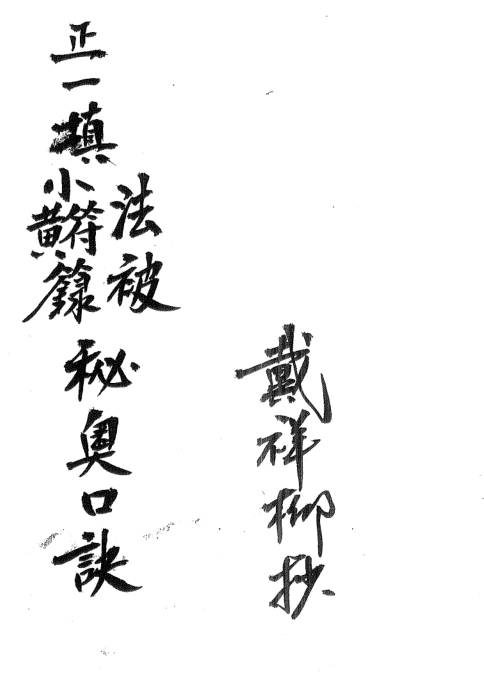 戴祥柳抄
正一填
法被
小黄符籙
秘奧口訣